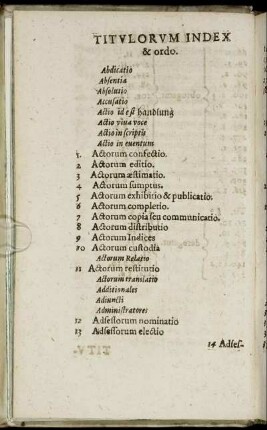 TITVLORVM INDEX
& ordo.
Abdicatio
Absentia
Absolutio
Accusatio
Actio id est handlung
Actio viua voce
Actio in scriptis
Actio in euentum
1. Actorum confectio.
2. Actorum editio.
3 Actorum æstimatio.
4 Actorum sumptus.
5 Actorum exhibitio & publicatio.
6 Actorum completio.
7 Actorum copia seu communicatio.
8 Actorum distributio
9 Actorum Indices
10 Actorum custodia
Actorum Relatio
11 Actorum restitutio
Actorum translatio
Additionales
Adiuncti
Administratores
12 Adsessorum nominatio
13 Adsessorum electio
14 Adses-